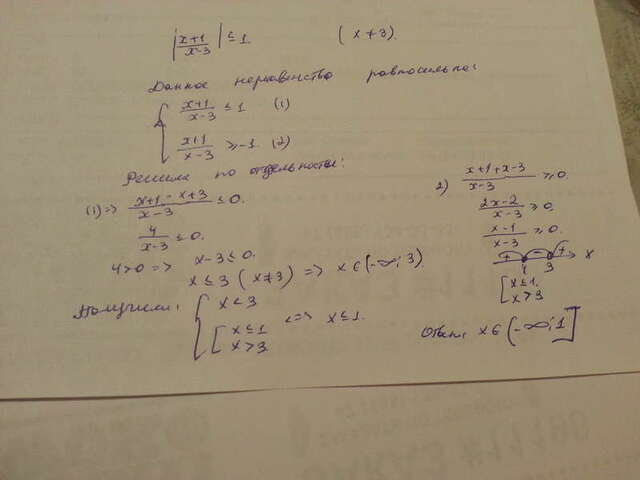 |x+1/x-3| ≤ 1. (x ≠ 3).
Данное неравенство равносильно:
{ x+1/x-3 ≤ 1 (1)
x+1/x-3 ≥ -1 (2)
Решим по отдельности:
(1) => x+1-x+3/x-3 ≤ 0.
4/x-3 ≤ 0.
4>0 => x-3 ≤ 0.
x ≤ 3 (x≠3) => x ∈ (-∞; 3)
2) x+1+x-3/x-3 ≥ 0.
2x-2/x-3 ≥ 0.
x-1/x-3 ≥ 0.
+ - + x
1 3
[ x ≤ 1.
x > 3
Получили: { x < 3
[ x ≤ 1
x > 3 <=> x ≤ 1.
Ответ: x ∈ (-∞; 1]